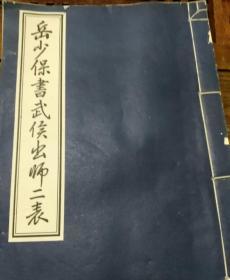 岳少保書武侯出師二表